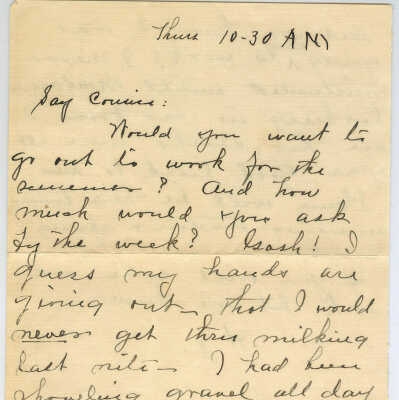 Thurs 10-30 AM
Say Connie:
Would you want to
go out to work for the
summer? And how
much would you ask
by the week? Gosh! I
guess my hands are
giving out - that I would
never get thru milking
last nite - I had been
shoveling gravel all day